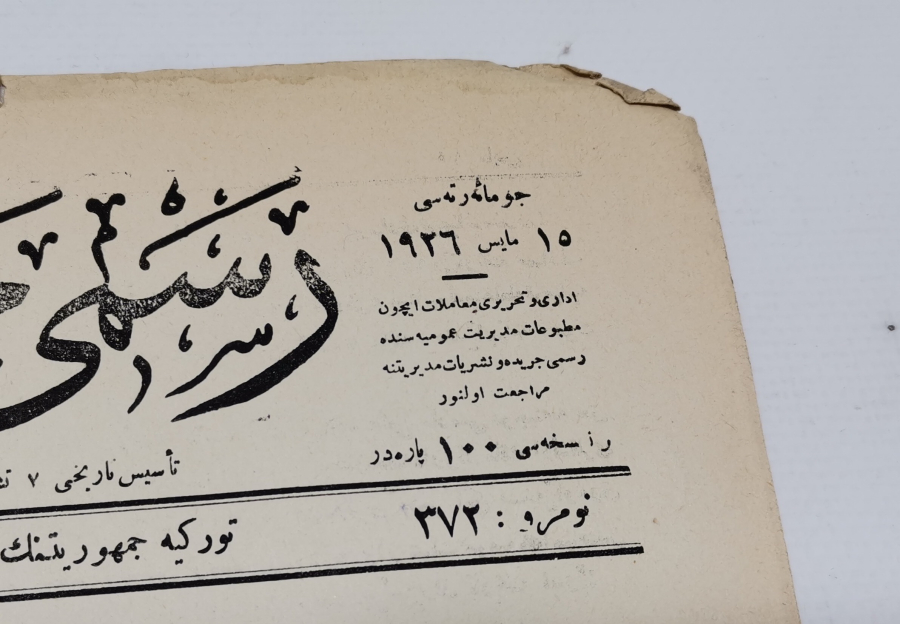 جومائەرتەسی
١٥ مایس ١٩٢٦
اداری و تحریری معاملات ایچون
مطبوعات مدیریت عمومیه سنده
رسمی جریده و نشریات مدیریتنه
مراجعت اولنور
نسخه سی ١٠٠ پاره در
رسمی
تأسیس تاریخی ٧
نومرو : ٣٧٢
تورکیه جمهوریتنك